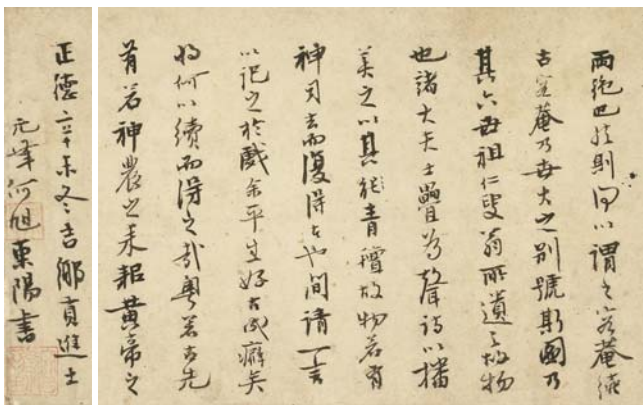 而絶也 則 以謂之 菴
古 菴乃世大之别號斯圖乃
其六世祖仁叟翁所遺之故物
也諸大夫士疊為聲詩以播
美之以其能青氊故物若有
神司去而復得者也間請一言
以記之於戲余平生好古成癖矣
將何以續而得之哉粤若古先
有若神農之耒耜黄帝之
正德辛未冬吉鄉貢進士
元峰何旭東陽書